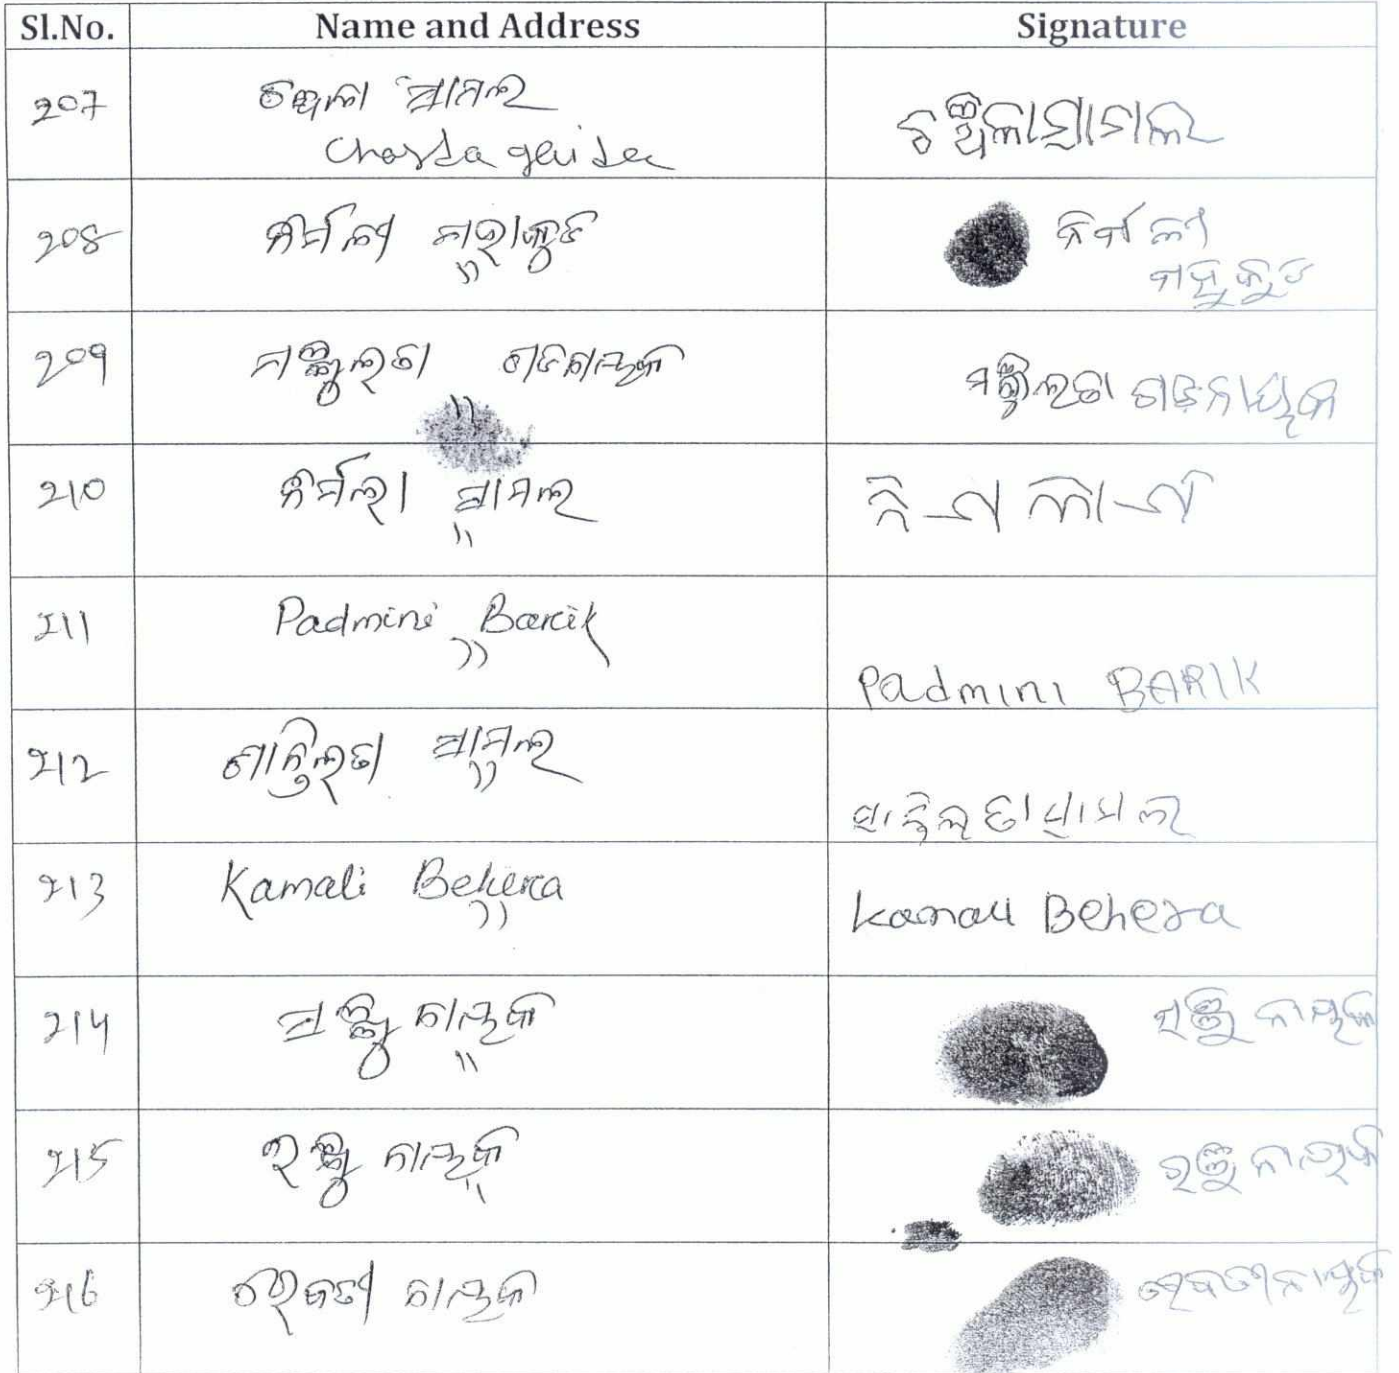 Sl.No. Name and Address Signature
207 ଚଞ୍ଚଳା ସାମଲ ଚଞ୍ଚଳା ସାମଲ
208 ନିର୍ମଳୀ ନିର୍ମଳୀ
"
209 ମଞ୍ଜୁଲତା ଗଡନାୟକ ମଞ୍ଜୁଲତା ଗଡନାୟକ
"
210 ନିର୍ମଳା ସାମଲ
"
211 Padmini Barik
"
Padmini BARIK
212 ଶାନ୍ତିଲତା ସାମଲ
"
ସାନ୍ତିଲତା ସାମଲ
213 Kamali Behera Kamali Behera
"
214 ସଞ୍ଜୁ ନାୟକ ସଞ୍ଜୁ ନାୟକ
"
215 ରଞ୍ଜୁ ନାୟକ ରଞ୍ଜୁ ନାୟକ
"
216 ରେବତୀ ନାୟକ ରେବତୀ ନାୟକ